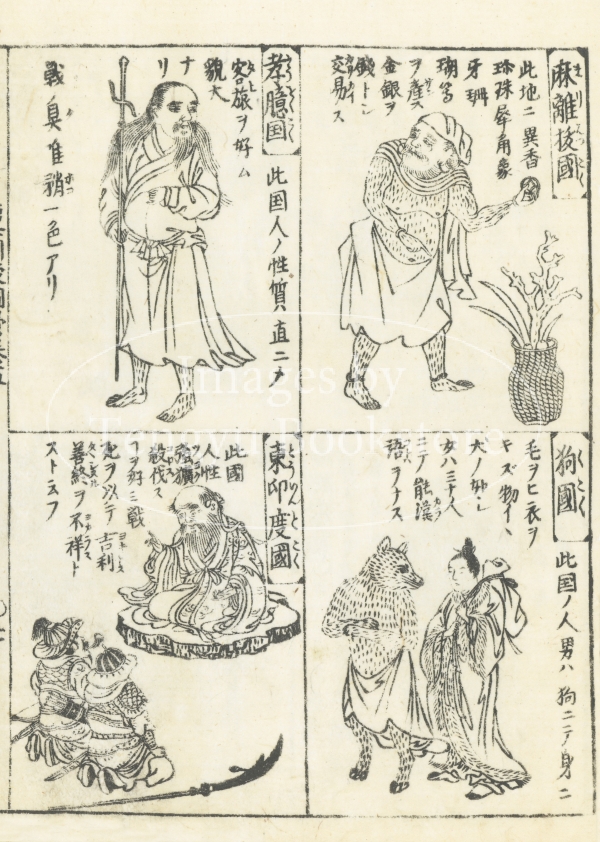 麻離抜國
此地ニ異香
珍珠犀角象
牙珊
瑚等
ヲ産ス
金銀ヲ
銭トシ
交易ス
孝臆国
此国人ノ性質直ニシテ
客旅ヲ好ム
貌大
ナ
リ
戦
一色アリ
狗國
此国ノ人男ハ狗ニテ身ニ
毛ヲヒ衣ヲ
キズ物イヘハ
犬ノ如シ
女ハ三十人
ニテ能漢
語ヲナス
東印度國
此國
人性
強獷
殺伐ス
ヿヲ好ミ戦
死ヲ以テ吉利
善終ヲ不祥ト
スト云フ
Images by
Tenpyu Bookstore